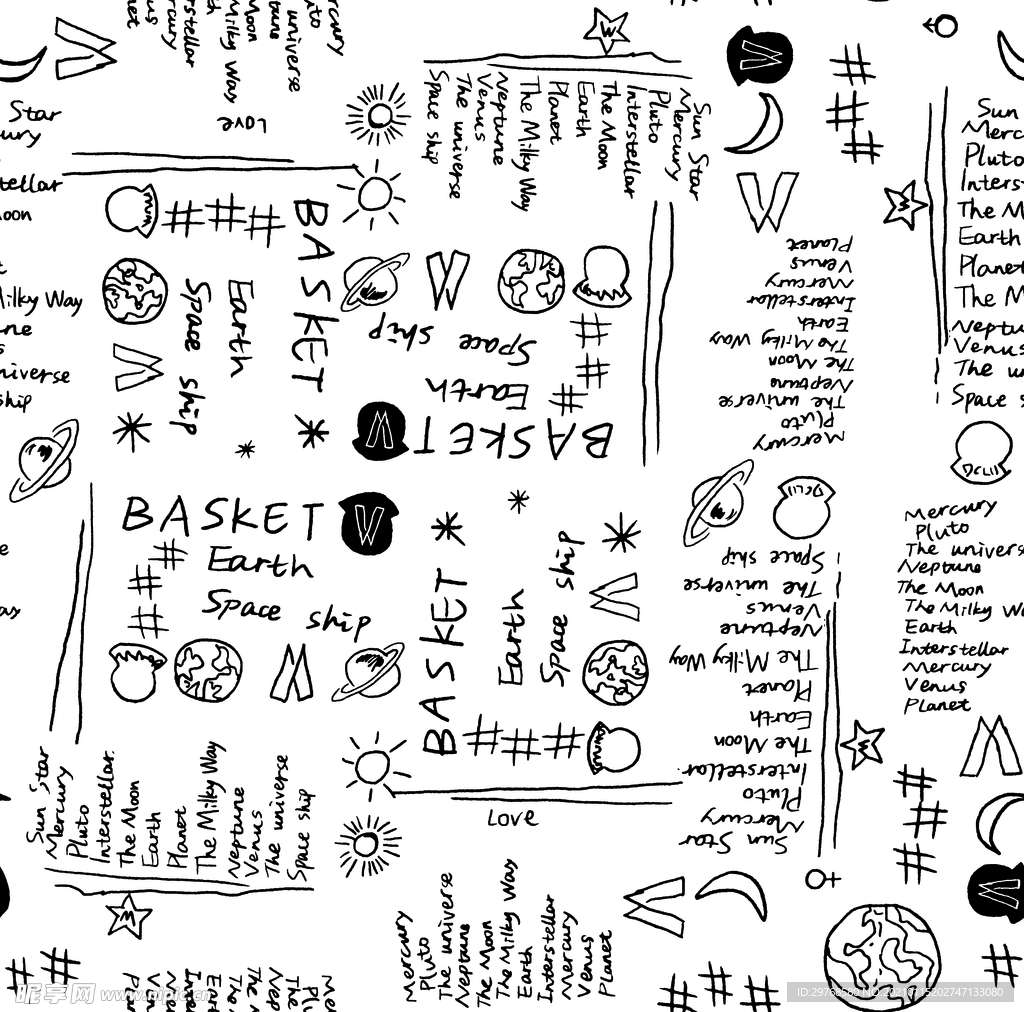 Mercury
Pluto
universe
Moon
Milky Way
Mercury
Love
Star
Sun Star
Mercury
Pluto
Interstellar
The Moon
Earth
Planet
The Milky Way
Neptune
Venus
The universe
Space ship
BASKET
Earth
Space ship
BASKET
Earth
Space ship
BASKET
Earth
Space ship
BASKET
Earth
Space ship
Milky Way
Mercury
Pluto
The universe
Neptune
The Moon
The Milky Way
Earth
Interstellar
Mercury
Venus
Planet
Sun
Pluto
Earth
Planet
Venus
Space
Mercury
Pluto
The universe
Neptune
The Moon
The Milky Way
Earth
Interstellar
Mercury
Venus
Planet
Sun Star
Mercury
Pluto
Interstellar
The Moon
Earth
Planet
The Milky Way
Neptune
Venus
The universe
Space ship
Sun Star
Mercury
Pluto
Interstellar.
The Moon
Earth
Planet
The Milky Way
Neptune
Venus
The universe
Space ship
Love
Mercury
Pluto
The universe
Neptune
The Moon
The Milky Way
Earth
Interstellar
Mercury
Venus
Planet
昵享网 www.nipic.cn